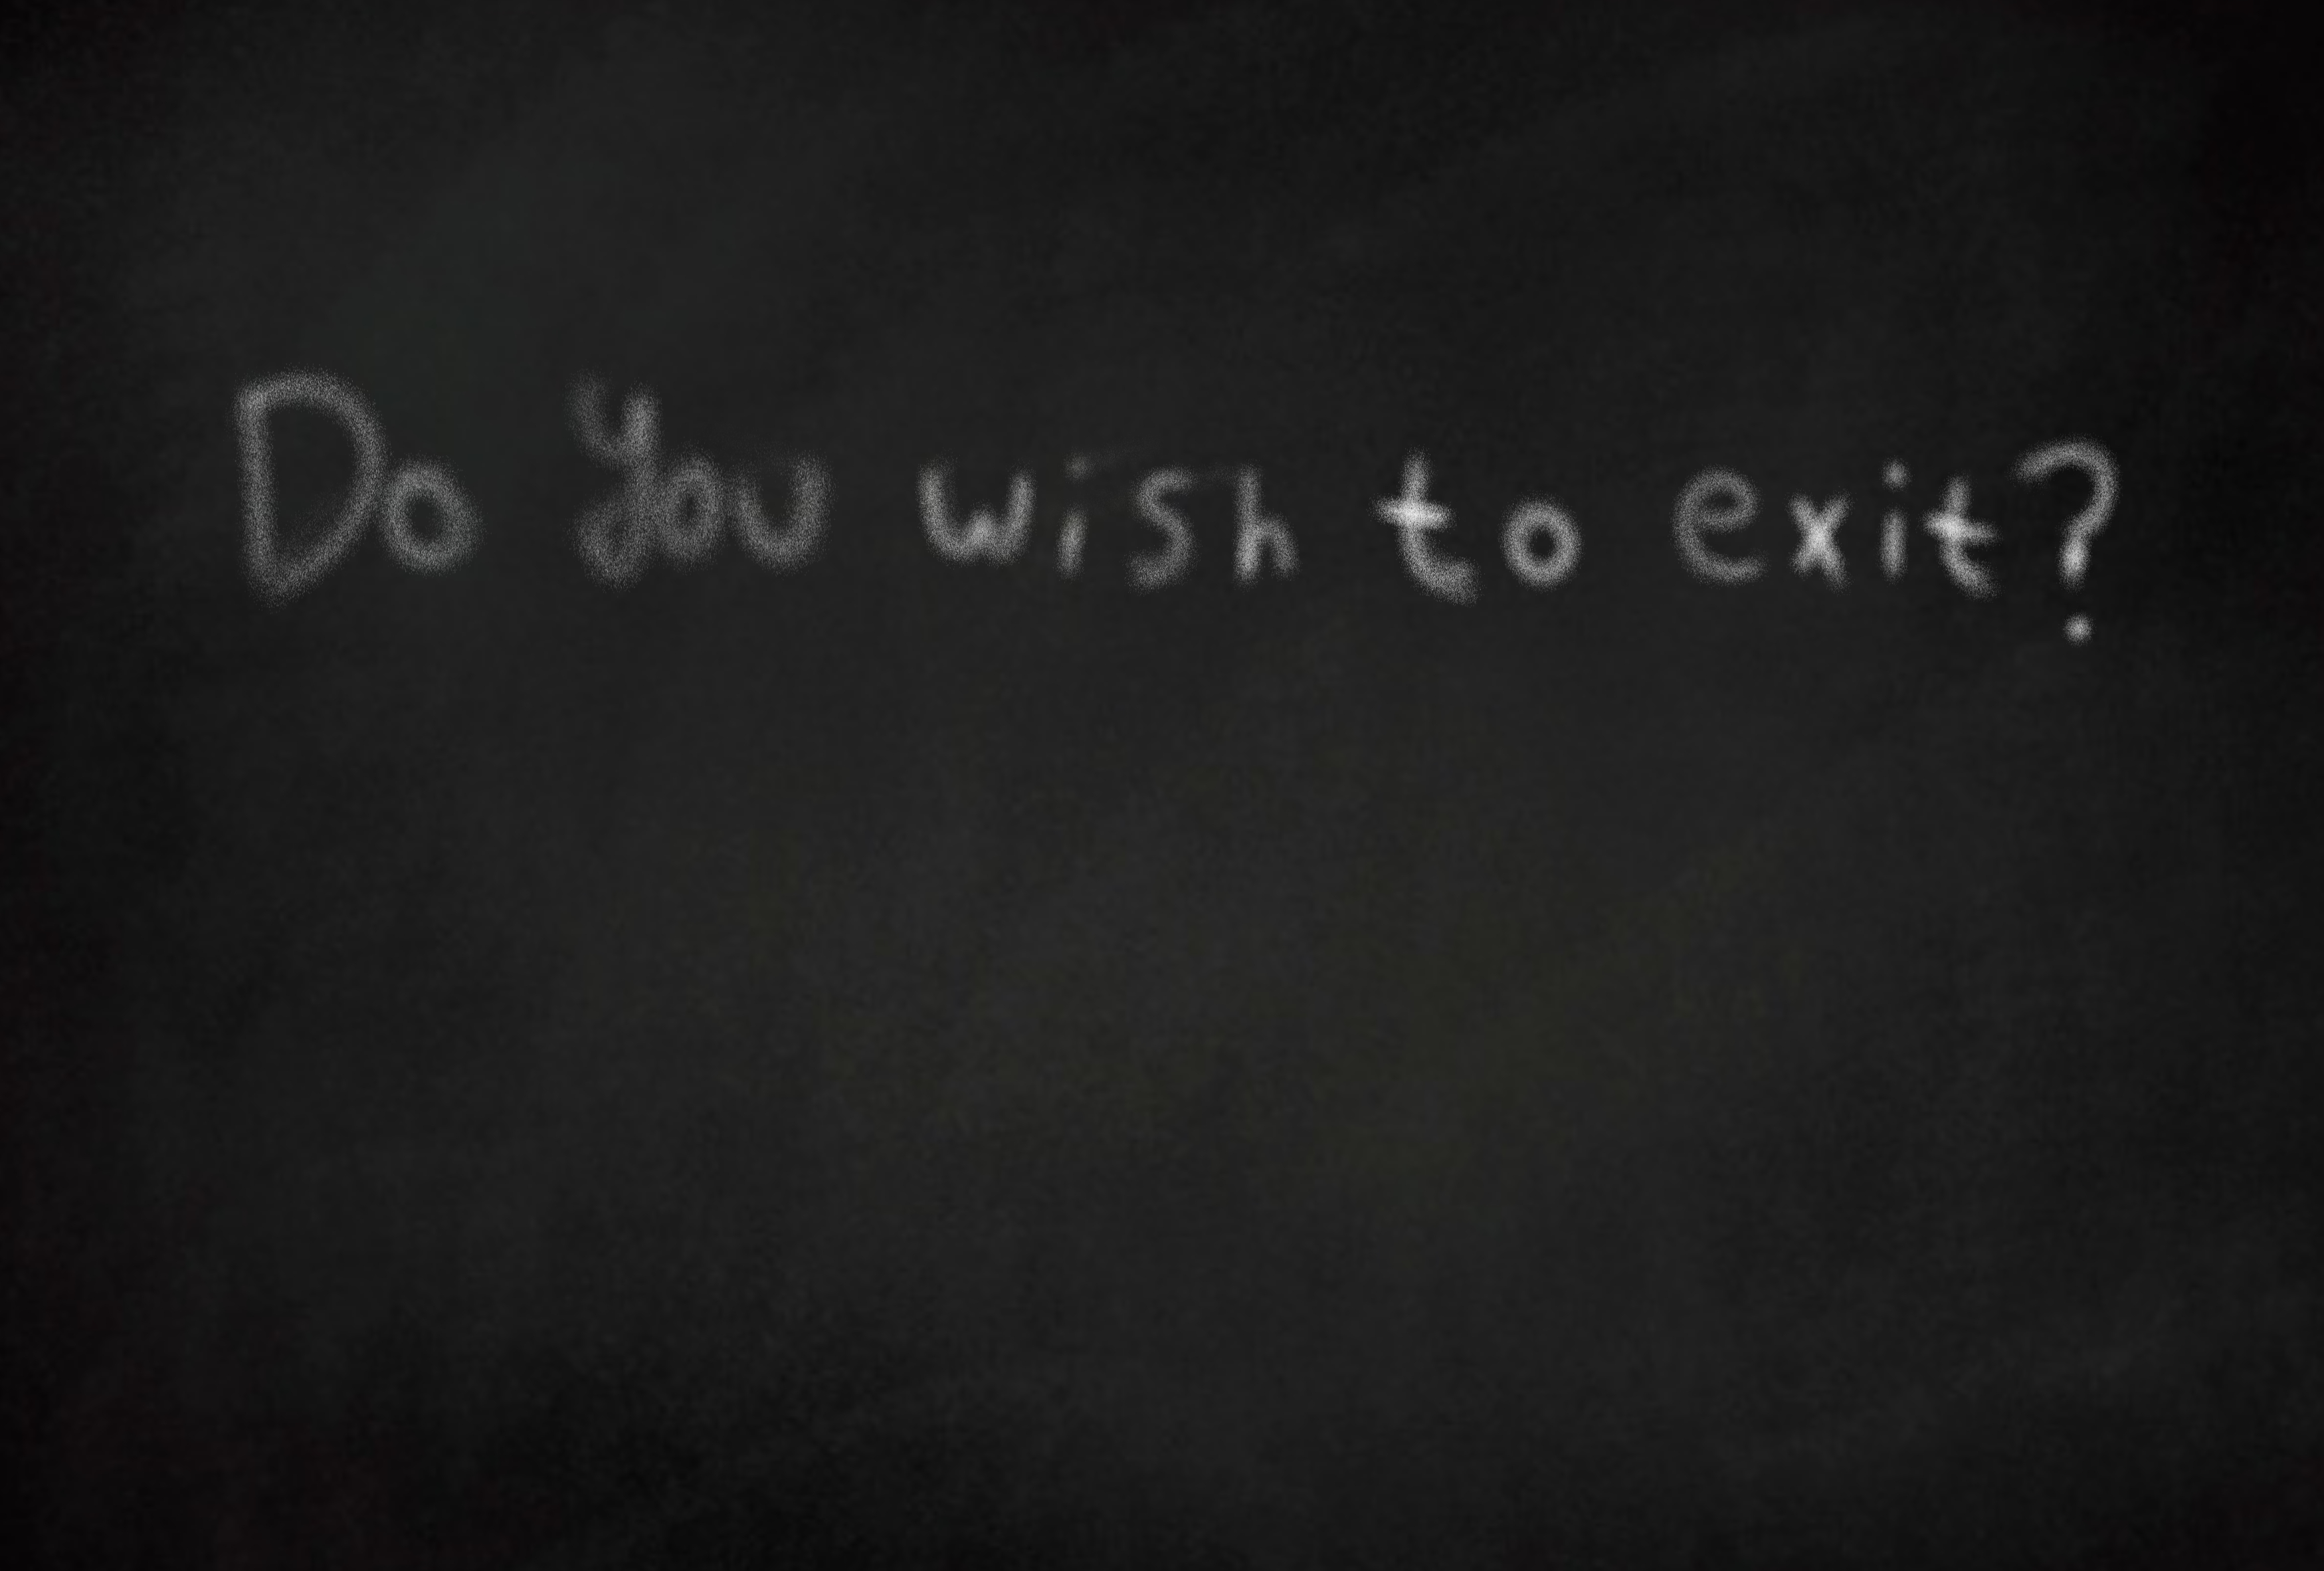 Do you wish to exit?